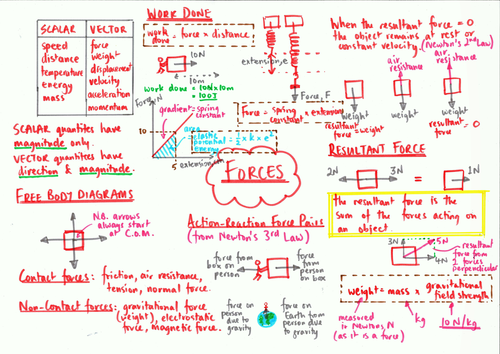 SCALAR
speed
distance
temperature
energy
mass
VECTOR
force
weight
displacement
velocity
acceleration
momentum
SCALAR quantites have
magnitude only.
VECTOR quantites have
direction & magnitude.
FREE BODY DIAGRAMS
N.B. arrows
always start
at C.O.M.
Contact forces: friction, air resistance,
tension, normal force.
Non-Contact forces: gravitational force
(weight), electrostatic
force, magnetic force.
WORK DONE
work done = force x distance
10N
10m
work done = 10N x 10m
= 100J
Force, N
gradient = spring
constant
10
area =
elastic
potential
energy
= 1/2 x k x e²
5
extension
extension, e
Force, F
Force = spring constant x extension
FORCES
Action-Reaction Force Pairs
(from Newton's 3rd Law)
force from
box on
person
force from
person
on box
force on
person due
to gravity
force on
Earth from person
due to
gravity
When the resultant force = 0
the object remains at rest or
constant velocity. (Newton's 1st Law)
air
resistance
air
resistance
weight
weight
weight
resultant
force = weight
resultant
force = 0
RESULTANT FORCE
2N
3N
=
1N
the resultant force is the
sum of the forces acting on
an object
3N
5N
4N
resultant
force from
forces
perpendicular
weight = mass x gravitational
field strength
measured
in Newtons, N
(as it is a force)
kg
10 N/kg